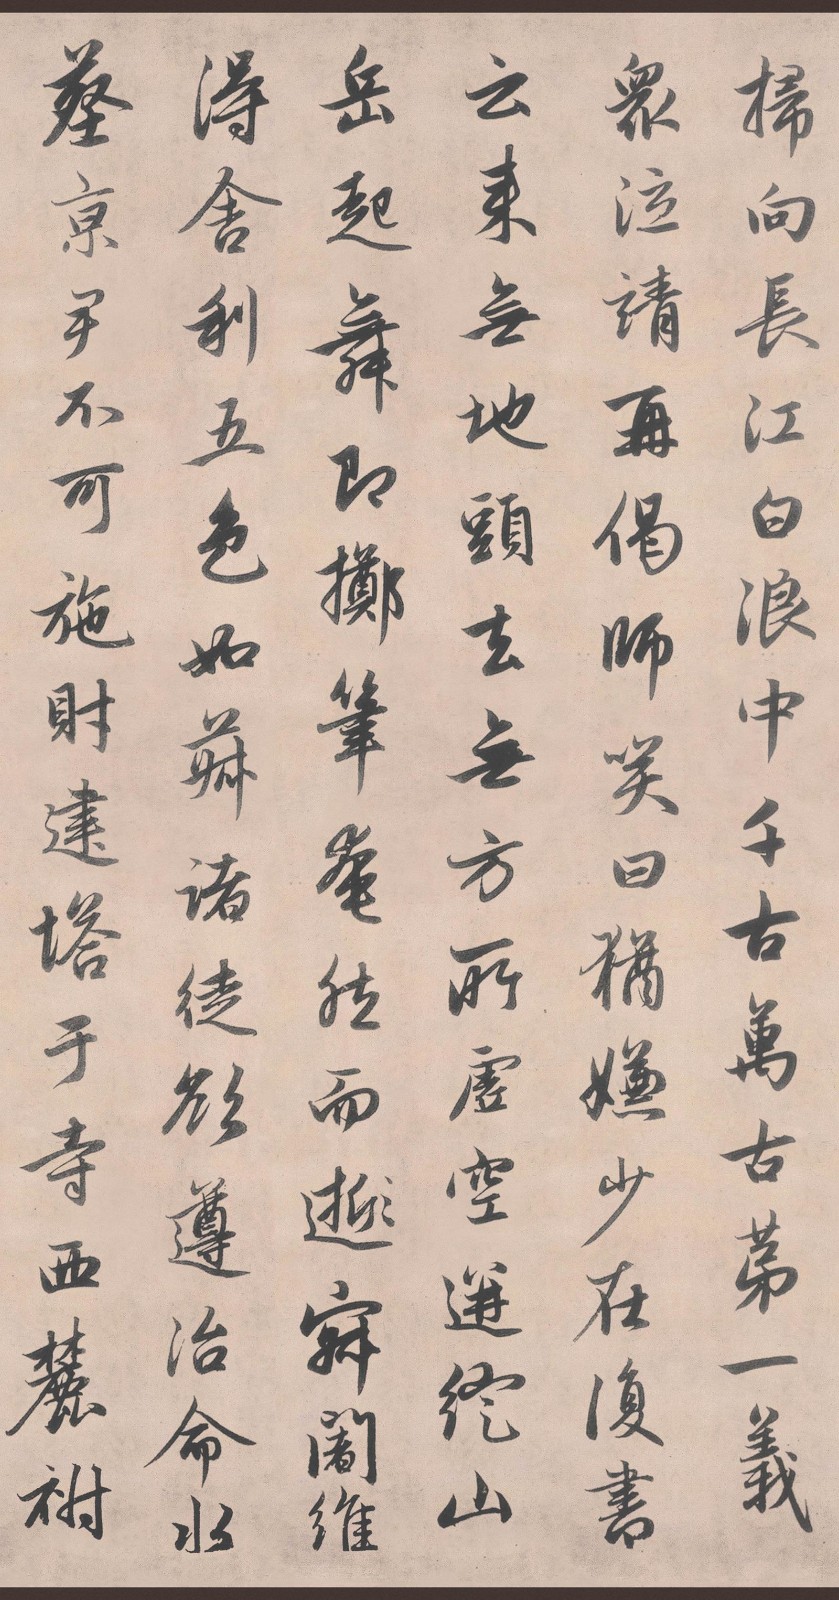 掃向長江白浪中千古萬古第一義
眾泣請再偈師笑曰猶嫌少在復書
云來無地頭去無方所虛空迸綻山
岳起舞即擲筆奄然而逝寂闍維
得舍利五色如菽諸徒欲遵治命水
葬京尹不可施財建塔于寺西麓祔